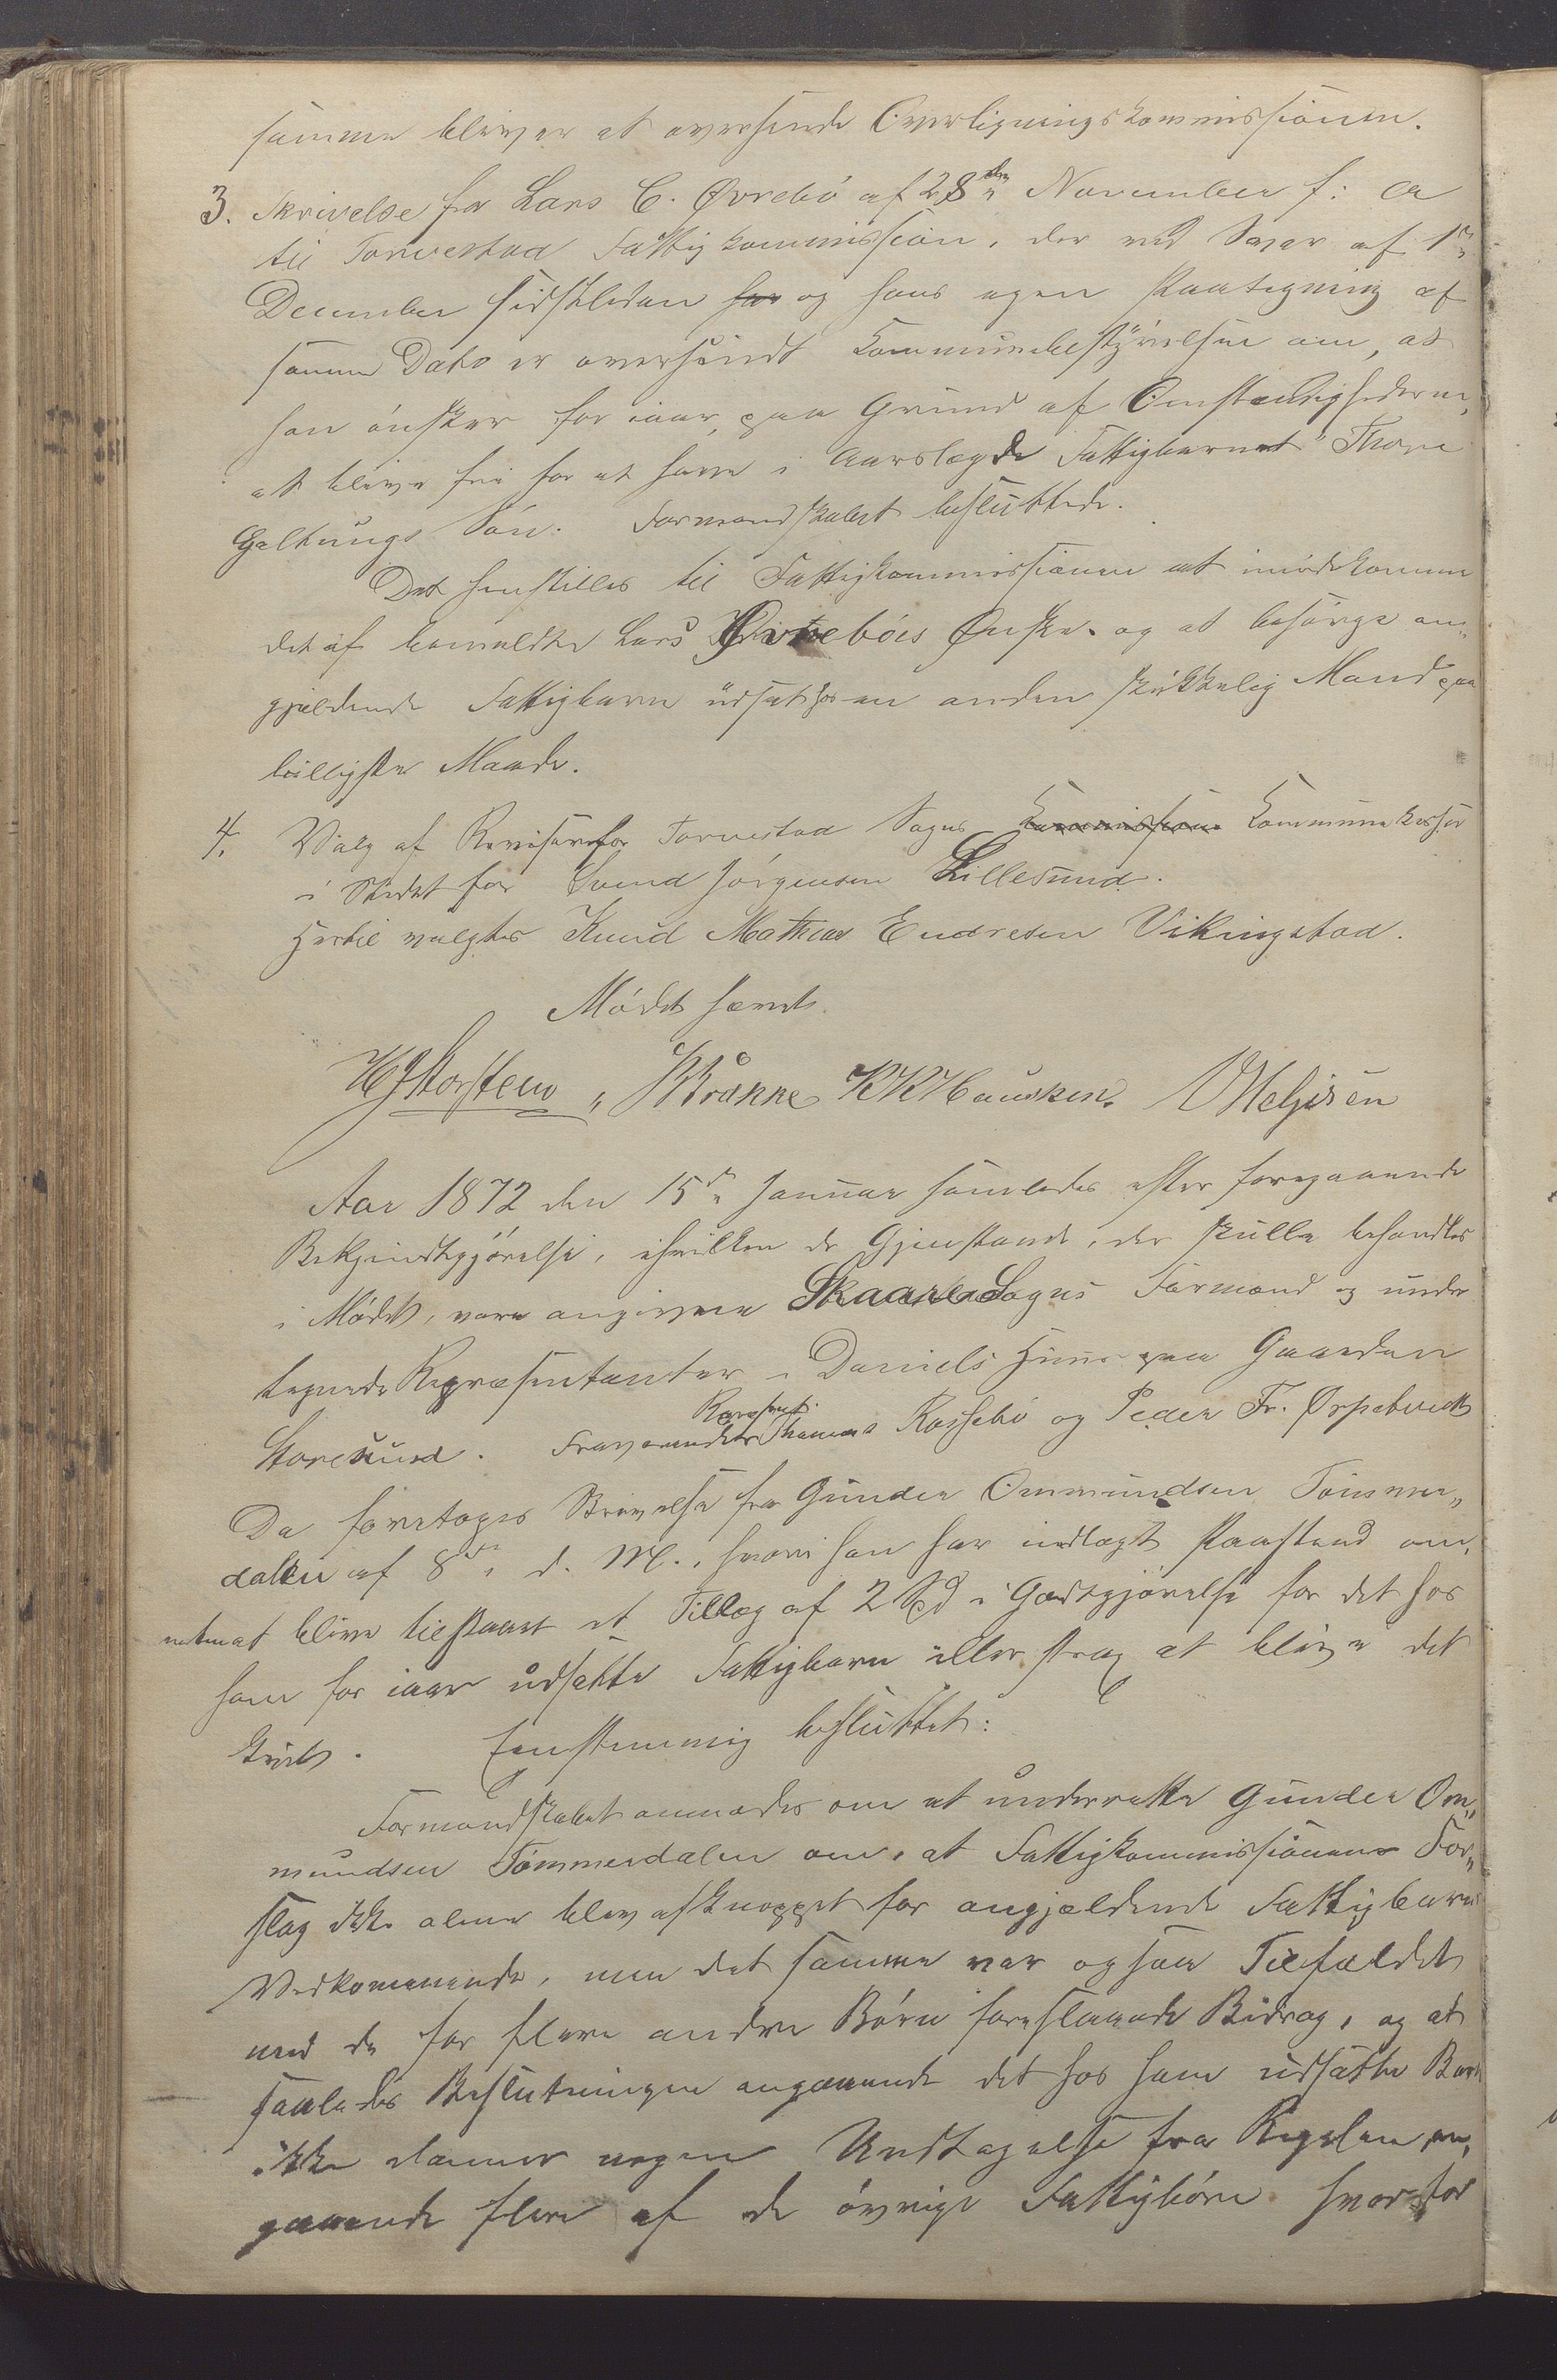 samme bliver at oversende Overligningskommissionen.
3. Skrivelse fra Lars C. Øvrebö af 28de November f: a
til Torvestad Fattigkommission, der med Svar af 1ste
December sidstleden har og hans egen Paategning af
samme Dato er oversendt Kommunebestyrelsen om, at
han ønsker for iaar, paa Grund af Omstændighederne,
at blive fri for at have i Aarslægde Fattigbarnet Thore
Geltungs Søn. Formandskabet besluttede.
Det henstilles til Fattigkommissionen at imødekomme
det af bemeldte Lars Øvrebøes Ønske. og at besørge an„
gjældende Fattigbarn udsat hos en anden skikkelig Mand paa
billigste Maade.
4. Valg af Revisor for Torvestad Sogns Kommission Kommunekasse
i Stedet for Svend Jörgensen Lillesund.
Hertil valgtes Knud Mathias Endresen Vikingstad.
Mödet hævet.
HJStorsteen KKHausken. VMeljisen
Aar 1872 den 15de Januar samledes efter foregaaende
Bekjendtgjørelse, i hvilken de Gjenstande, der skulle behandles
i Mødet, vare angivne Skaare Sogns Formænd og under
tegnede Repræsentanter i Daniels Huus paa Gaarden
Storesund. Fraværende Repræsent. Thomas Rossebö og Peder Fr. Ørpetvedt
Da foretoges Skrivelse fra Gunder Ommundsen Tömmer„
dalen af 8de d. M., hvori han har indlagt Paastand om,
enten at blive tilstaaet et Tillæg af 2 Spd i Godtgjørelse for det hos
ham for iaar udsatte Fattigbarn eller strax at blive det
kvit. Eenstemmig besluttet:
Formandskabet anmodes om at underrette Gunder Om„
mundsen Tömmerdalen om, at Fattigkommissionens For„
slag ikke alene blev afknappet for angjældende Fattigbarns
Vedkommende, men det samme var ogsaa Tilfældet
med de for flere andre Børn foreslaaede Bidrag, og at
saaledes Beslutningen angaaende det hos ham udsatte Barn
ikke danner nogen Undtagelse fra Regelen an„
gaaende flere af de øvrige Fattigbørn hvorfor